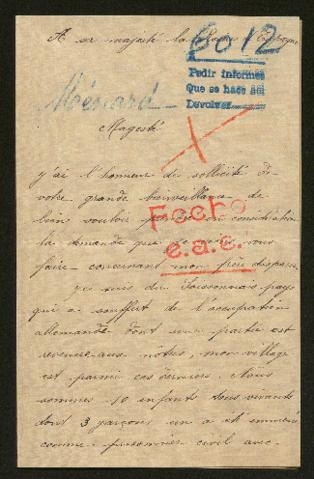 A sa majesté la Reine d'Espagne
6012
Pedir informes
Que se hace aqi
Devolver
Ménard
Magesté
j'ai l'honneur de sollicité de
votre grande bienveillance de
bien vouloir prendre en considération
la demande que je vous
faire concernant mon frère disparu
Fecho
e.a.c.
je suis du Soissonnais, pays
qui a souffert de l'occupation
allemande dont une partie est
revenue aux nôtres, mon village
est parmi ces derniers. Nous
sommes 10 enfants tous vivants
dont 3 garçons un a été emmené
comme prisonnier civil avec